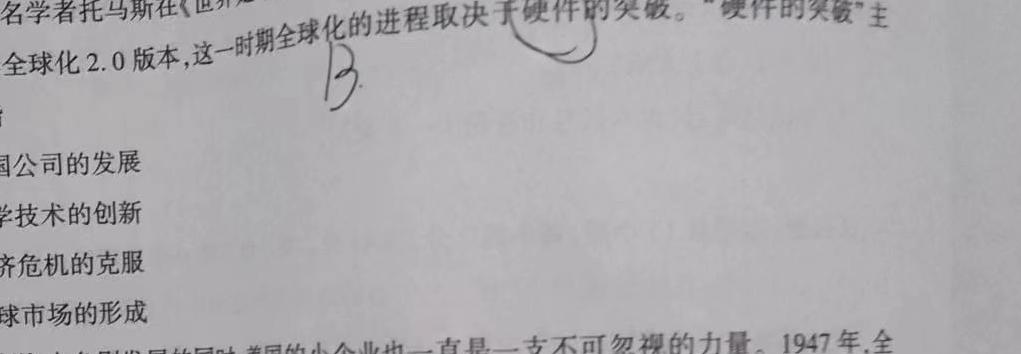 名学者托马斯在《世界
全球化2.0版本,这一时期全球化的进程取决于硬件的突破。“硬件的突破”主
B.
国公司的发展
学技术的创新
济危机的克服
球市场的形成
发展的同时,美国的小企业也一直是一支不可忽视的力量。1947年,全